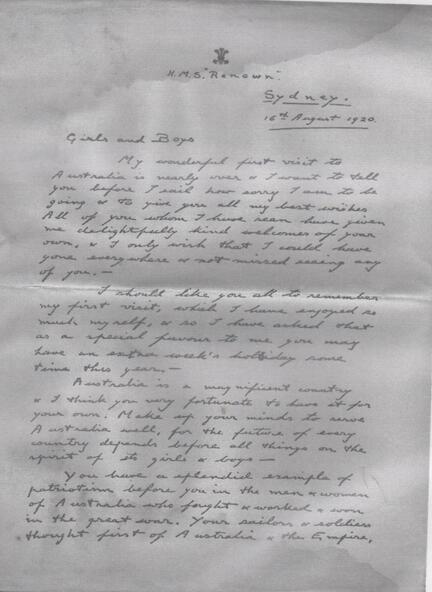 H.M.S. "Renown".
Sydney.
16th August 1920.
Girls and Boys
My wonderful first visit to
Australia is nearly over & I want to tell
you before I sail how sorry I am to be
going & to give you all my best wishes
All of you whom I have seen have given
me delightfully kind welcomes of your
own, & I only wish that I could have
gone everywhere & not missed seeing any
of you. —
I should like you all to remember
my first visit, which I have enjoyed so
much myself, & so I have asked that
as a special favour to me you may
have an extra week's holiday some
time this year. —
Australia is a magnificent country
& I think you very fortunate to have it for
your own. Make up your minds to serve
Australia well, for the future of every
country depends before all things on the
spirit of its girls & boys —
You have a splendid example of
patriotism before you in the men & women
of Australia who fought & worked & won
in the great war. Your sailors & soldiers
thought first of Australia & the Empire,